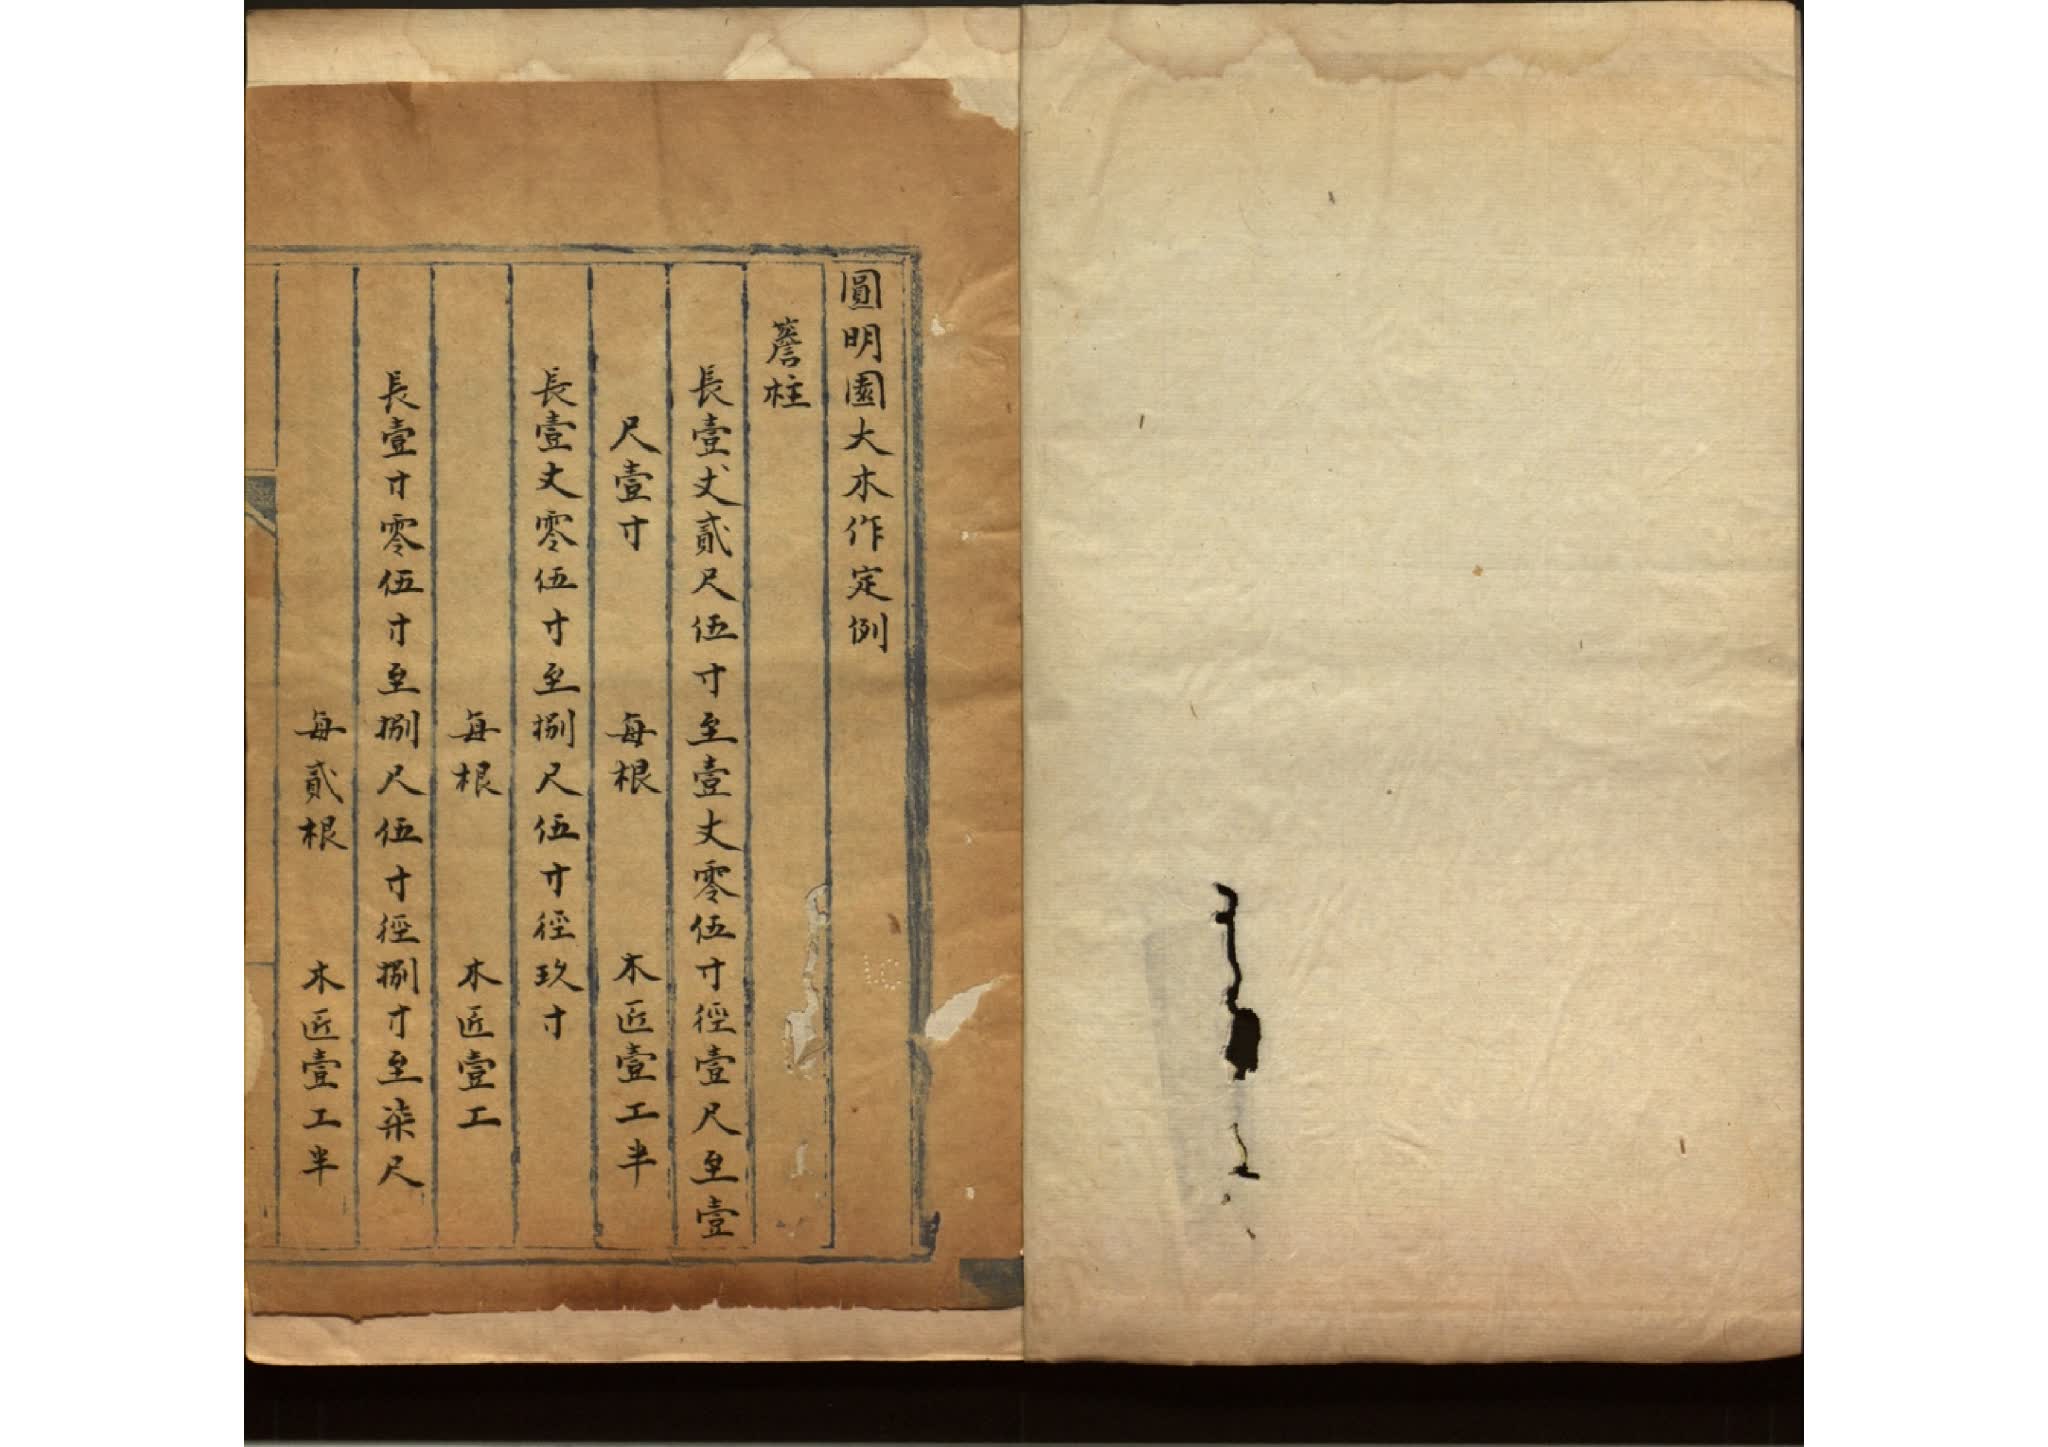 圓明園大木作定例
簷柱
長壹丈貳尺伍寸至壹丈零伍寸徑壹尺至壹
尺壹寸 每根 木匠壹工半
長壹丈零伍寸至捌尺伍寸徑玖寸
每根 木匠壹工
長壹寸零伍寸至捌尺伍寸徑捌寸至柒尺
每貳根 木匠壹工半